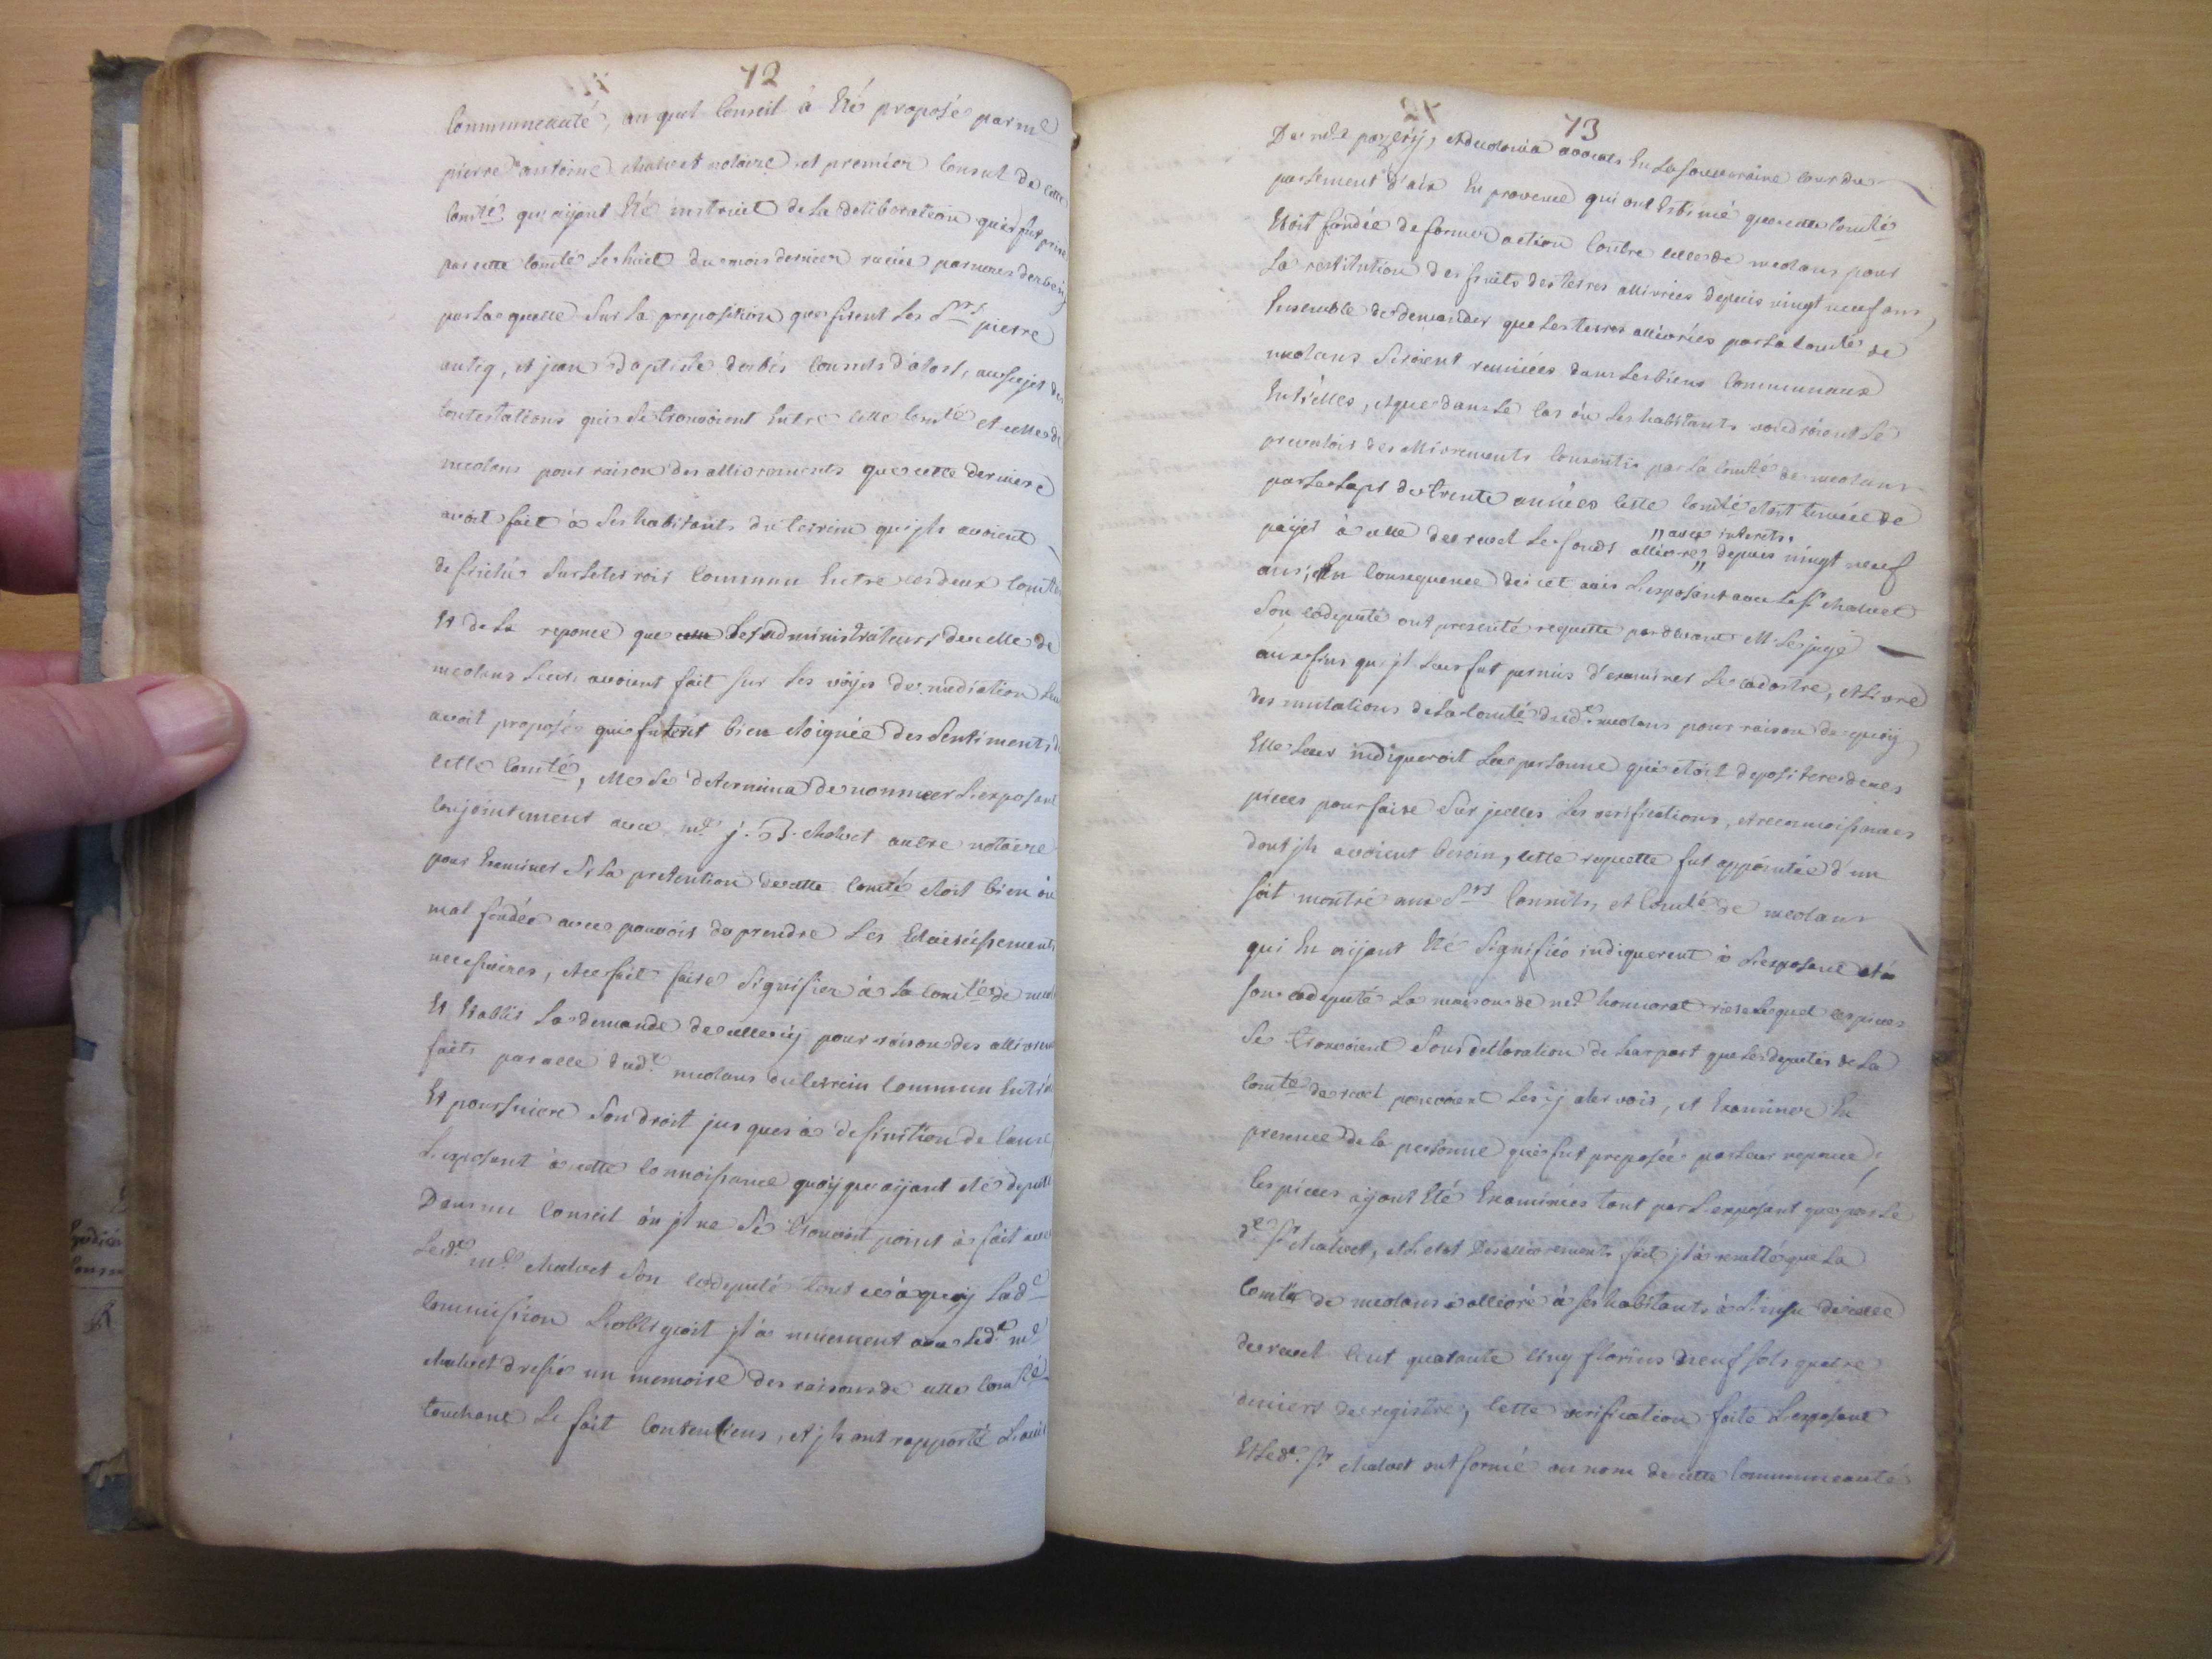 72
Communeauté, au quel Conseil à Eté proposé par me
pierre antoine Maluet notaire et premier Consul de cette
Comté qu'aijant Eté instruict de La deliberation qui fut prise
par cette Comté Le huict du mois dernier
par Laquelle Sur La proposition que firent Les Srs pierre
autig, et jean baptiste derbés Consuls d'alors, au sujet des
Contestations qui Se trouvoient Entre cette Comté et celle de
meolans pour raison des allivrements que cette derniere
avoit fait à Ses habitants du terrein qu'jls avoient
defriché Sur Le terroir Commun Entre ces deux Comtés
Et de La reponce que Les administrateurs de celle de
meolans Leurs avoient fait sur Les voijes de mediation
avoit proposée qui furent bien eloignée des Sentiments de
cette Comté, elle Se determina de nommer L'exposant
Conjointement avec me j. B. Maluet autre notaire
pour Examiner Si La pretention de cette Comté etoit bien ou
mal fondée avec pouvoir de prendre Les Eclaircissements
necessaires, et ce fait faire Signifier à La Comté de
Et Etablir La demande de celle cij pour raison des
faits par celle dud. meolans du terrein Commun
Et poursuivre Son droit jusques à definition de Cause
L'exposant à cette Connoissance quoijque aijant eté deputé
Dans un Conseil où jl ne Se trouvoit point à fait avec
Led. me Maluet Son Codeputé tout ce à quoij Lad.
Commission L'obligeoit jl à avec Led. me
Maluet dressé un memoire des raisons de cette Comté
touchant Le fait Contentieux, et jls ont rapporté L'avis
73
De mes pazerij, et avocats En La Souveraine Cour du
parlement d'aix En provence qui ont Estimé que cette Comté
Etoit fondée de former action Contre celle de meolans pour
La restitution des fruits des terres allivrées depuis vingt neuf ans
Ensemble de demander que Les terres allivrées par La Comté de
meolans Seroient reuniees dans Les biens Communaux
Entr'elles, et que dans Le Cas où Les habitants voudroient Se
prevaloir des allivrements Consentis par La Comté de meolans
par Le Laps de trente années cette Comté etoit tenuee de
,, avec interets.
paijer à celle de revel Les fonds allivrés ,, depuis vingt neuf
ans; En Consequence de cet avis L'exposant avec Le Sr Maluet
Son Codeputé ont presenté requette pardevant M. Le juge
aux fins qu'jl Leur fut permis d'examiner Le Cadastre, et Livre
des mutations de La Comté dud. meolans pour raison de quoij
Elle Leur indiqueroit La personne qui etoit depositere de ces
pieces pour faire Sur jcelles Les verifications, et reconnoissances
dont jls avoient besoin, cette requette fut appointée d'un
soit montré aux Srs Consuls, et Comté de meolans
qui En aijant Eté Signifiés indiquerent à L'exposant et à
Son Codeputé La maison de me honnorat Lequel ces pieces
Se trouvoient Sous declaration de Leur part que Les deputés de La
Comté de revel pouvoient Les ij aler voir, et Examiner En
presence de La personne qui fut preposée par Leur reponce;
Ces pieces aijant Eté Examinées tant par L'exposant que par Le
d. Sr Maluet, et L'etat Des allivrements fait jl à resulté que La
Comté de meolans à allivré à Ses habitants à L'insu de celle
de revel Cent quarante Cinq florins neuf Sols quatre
deniers de registre; Cette verification faite L'exposant
Et Led. Sr Maluet ont formé au nom de cette Communeauté